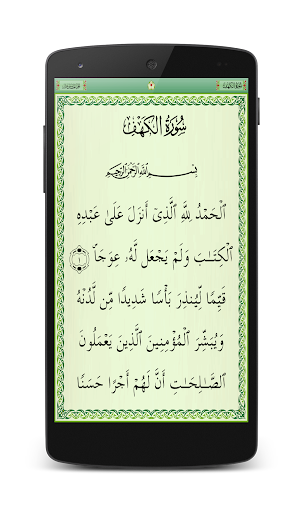 سُورَةُ الكَهْفِ
بِسْمِ اللَّهِ الرَّحْمَٰنِ الرَّحِيمِ
ٱلْحَمْدُ لِلَّهِ ٱلَّذِىٓ أَنزَلَ عَلَىٰ عَبْدِهِ
ٱلْكِتَـٰبَ وَلَمْ يَجْعَل لَّهُۥ عِوَجَاۜ ١
قَيِّمًا لِّيُنذِرَ بَأْسًا شَدِيدًا مِّن لَّدُنْهُ
وَيُبَشِّرَ ٱلْمُؤْمِنِينَ ٱلَّذِينَ يَعْمَلُونَ
ٱلصَّـٰلِحَـٰتِ أَنَّ لَهُمْ أَجْرًا حَسَنًا